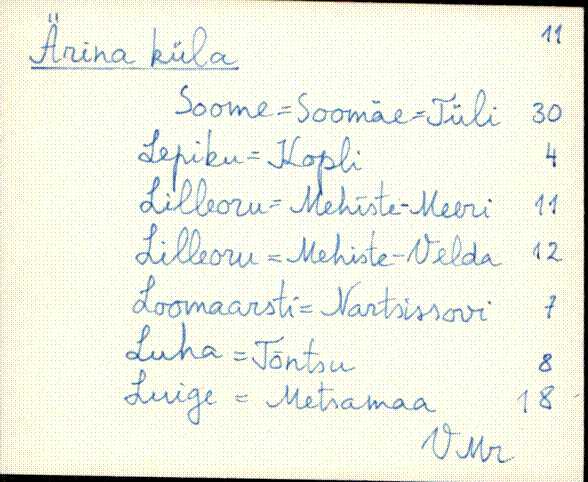 11
Ärina küla
Soome = Soomäe = Tüli 30
Lepiku = Kopli 4
Lilleoru = Mehiste-Meeri 11
Lilleoru = Mehiste-Velda 12
Loomaarsti = Nartsissovi 7
Luha = Tõntsu 8
Luige = Metsamaa 18
VMr